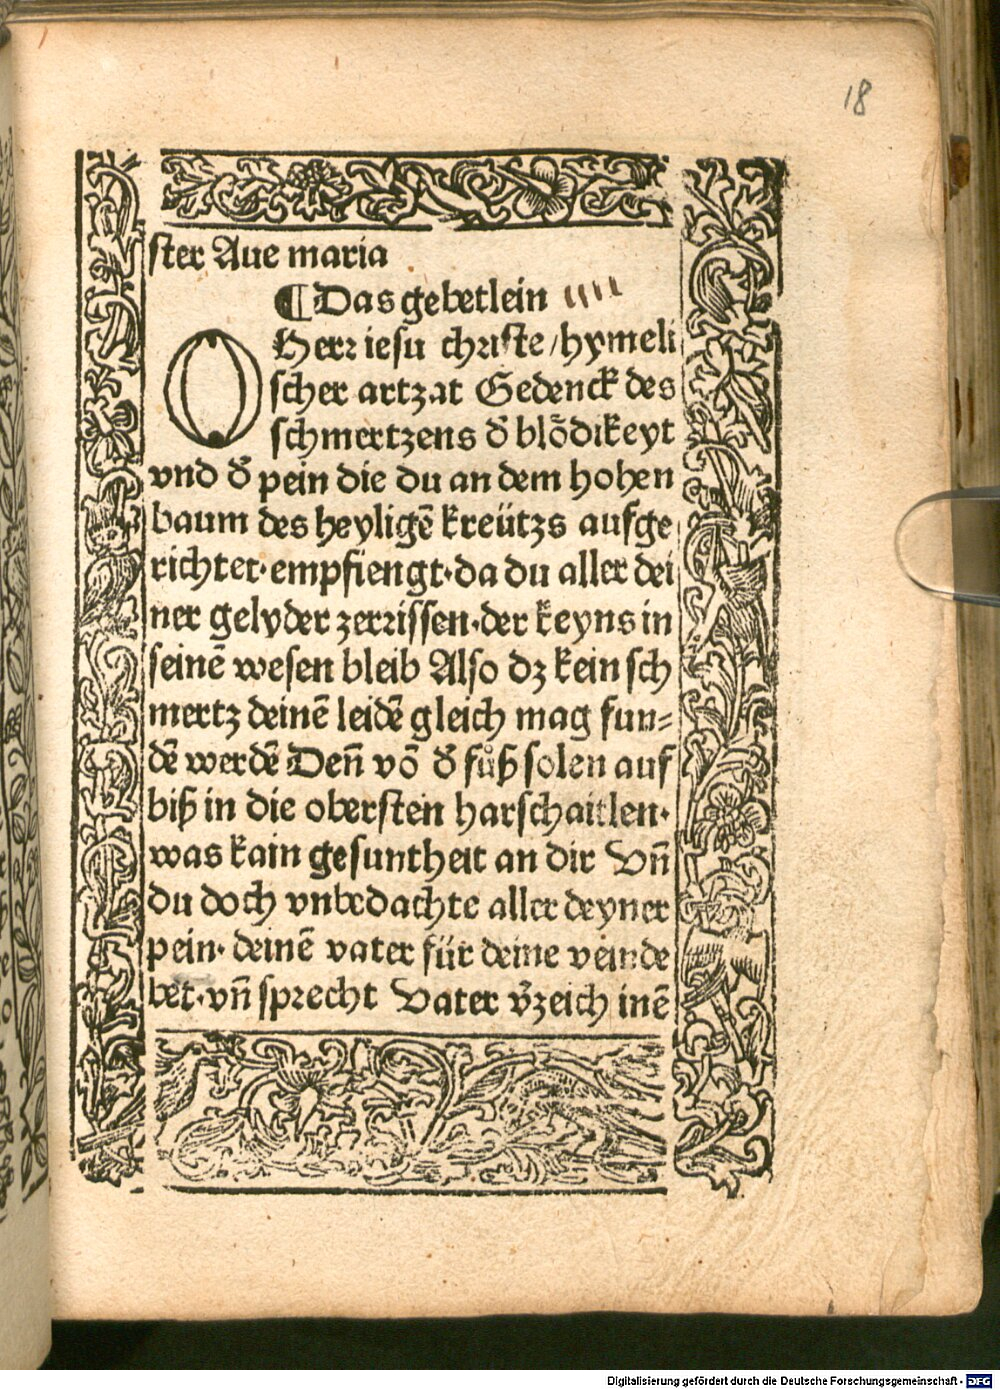 18
ster Aue maria
¶Das gebetlein ıııı
O Herr iesu christe/hymeli
scher artzat Gedenck des
schmertzens d̕ blödikeyt
vnd d̕ pein die du an dem hohen
baum des heyligē kreützs aufge
richtet·empfiengt·da du aller dei
ner gelyder zerrissen·der keyns in
seinē wesen bleib Also dz kein sch
mertz deinē leidē gleich mag fun⸗
dē werdē Den̄ vō d̕ fůß solen auf
biß in die obersten harschaitlen·
was kain gesuntheit an dir Vn̄
du doch vnbedachte aller deyner
pein· deinē vater für deine veinde
bet·vn̄ sprecht Vater v̕zeich inē
Digitalisierung gefördert durch die Deutsche Forschungsgemeinschaft - DFG